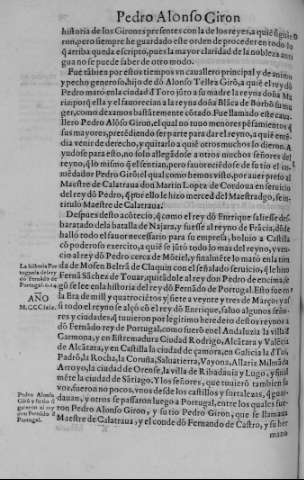 Pedro Alonso Giron
historia de los Girones presentes con la de los reyes, a quiẽ siguierõ
ron, pero siempre he guardado este orden de proceder en todo lo
q̃ arriba queda escripto, pues la mayor claridad de la nobleza anti
gua no se puede saber de otro modo.
Fue tãbien por estos tiempos vn cauallero principal y de animo
y pecho generoso, hijo de dõ Alonso Tellez Girõ, a quiẽ el rey dõ
Pedro matò en la ciudad đ Toro jũto a su madre la reyna doña Ma
ria: porq̃ ella y el fauorecian a la reyna doña Blãca de Borbõ su mu
ger, como dexamos bastãtemente cõtado. Fue llamado este caua-
llero Pedro Alõso Girõ, el qual no tuuo menores pẽsamientos q̃
sus mayores, pretẽdiendo ser parte para dar el reyno, a quiẽ enten
dia venir de derecho, y quitarlo a quiẽ otros muchos lo dieron. A
yudose para esto, no solo allegãdose a otros muchos señores del
reyno, q̃ lo mismo q̃ el sentian, pero fauoreciẽdose de su tio el co
mẽdador Pedro Girõ: el qual como hemos visto, por auer preso al
Maestre de Calatraua don Martin Lopez de Cordoua en seruicio
del rey dõ Pedro, q̃ por ello le hizo merced del Maestradgo, se in-
titulo Maestre de Calatraua.
Despues desto acõtecio, q̃ como el rey dõ Enrrique saliesse des
baratado de la batalla de Najara, y fuesse al reyno de Frãcia, dõde
hallò todo el fauor necessario para su empresa, boluio a Castilla
cõ poderoso exercito, a quiẽ se jũtò todo lo mas del reyno, y ven-
cio al rey dõ Pedro cerca de Mõtiel, y finalmẽte lo matò en la tiẽ
da de Mosen Beltrã de Claquin con el señalado seruicio, q̃ le hizo
Fernã Sãchez de Touar, quitãdole al rey don Pedro de encima, se
gũ se lee en la historia del rey dõ Fernãdo de Portugal. Esto fue en
la Era de mill y quatrociẽtos y siete a veynte y tres de Março: y assi
todo el reyno se alçò cõ el rey dõ Enrrique, saluo algunos seño-
res y ciudades, q̃ tuuieron por legitimo heredero destos reynos a
dõ Fernãdo rey de Portugal, como fuerõ en el Andaluzia la villa đ
Carmona, y en Estremadura Ciudad Rodrigo, Alcãtara y Valẽcia
de Alcãtara, y en Castilla la ciudad de çamora, en Galicia la đ Tui,
Padrõ, la Rocha, la Coruña, Saluatierra, Vayona, Allariz, Milmãda
Arroyo, la ciudad de Orense, la villa de Ribadauia y Lugo, y final
mẽte la ciudad de Sãtiago. Y los señores, que tuuierõ tambien su
voz, fueron no pocos, vnos desde los castillos y fortalezas, q̃ guar
dauan, y otros se passaron luego a Portugal, entre los quales fue-
ron Pedro Alonso Giron, y su tio Pedro Giron, que se llamaua
Maestre de Calatraua, y el conde dõ Fernando de Castro, y su her
mano
La historia Por
tuguesa del rey
dõ Fernãdo de
Portugal.
AÑO
M.CCC.lxix.
Pedro Alonso
Girõ y su tio si
guieron al rey
don Fernãdo đ
Portugal.